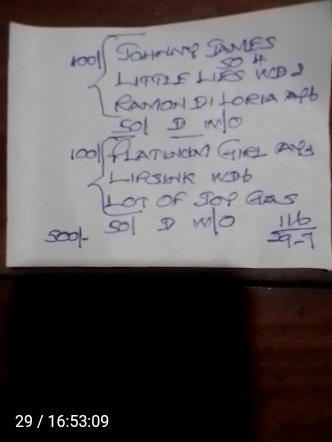 100/ JOHNNY JAMES
SO 4
LITTLE LIES WD2
RAMON DI LORIA
50/ D W/O
100/ PLATINUM GIRL
LIPSINK WD6
LOT OF JOY
50/ D W/O
300/-
116
29-7
29 / 16:53:09